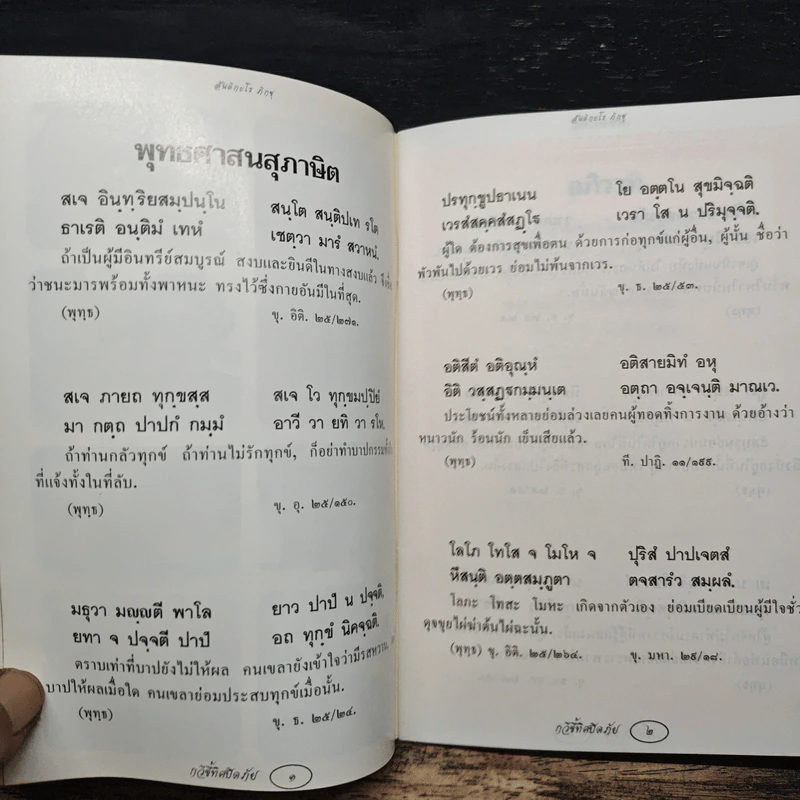 สันติกะโร ภิกขุ
พุทธศาสนสุภาษิต
สเจ อินฺทฺริยสมฺปนฺโน สนฺโต สนฺติปเท รโต
ธาเรติ อนฺติมํ เทหํ เชตฺวา มารํ สวาหนํ.
ถ้าเป็นผู้มีอินทรีย์สมบูรณ์ สงบและยินดีในทางสงบแล้ว
ว่าชนะมารพร้อมทั้งพาหนะ ทรงไว้ซึ่งกายอันมีในที่สุด.
(พุทฺธ) ขุ. อิติ. ๒๕/๒๗๑.
สเจ ภายถ ทุกฺขสฺส สเจ โว ทุกฺขมปฺปิยํ
มา กตฺถ ปาปกํ กมฺมํ อาวี วา ยทิ วา รโห.
ถ้าท่านกลัวทุกข์ ถ้าท่านไม่รักทุกข์, ก็อย่าทำบาปกรรม
ที่แจ้งทั้งในที่ลับ.
(พุทฺธ) ขุ. อุ. ๒๕/๑๕๐.
มธุวา มญฺญตี พาโล ยาว ปาปํ น ปจฺจติ.
ยทา จ ปจฺจตี ปาปํ อถ ทุกฺขํ นิคจฺฉติ.
ตราบเท่าที่บาปยังไม่ให้ผล คนเขลายังเข้าใจว่ามีรสหวาน,
บาปให้ผลเมื่อใด คนเขลาย่อมประสบทุกข์เมื่อนั้น.
(พุทฺธ) ขุ. ธ. ๒๕/๒๔.
กวีชี้ทิศปิดภัย ๑
สันติกะโร ภิกขุ
ปรทุกฺขูปธาเนน โย อตฺตโน สุขมิจฺฉติ
เวรสํสคฺคสํสฏฺโฐ เวรา โส น ปริมุจฺจติ.
ผู้ใด ต้องการสุขเพื่อตน ด้วยการก่อทุกข์แก่ผู้อื่น, ผู้นั้น ชื่อว่า
พัวพันไปด้วยเวร ย่อมไม่พ้นจากเวร.
(พุทฺธ) ขุ. ธ. ๒๕/๕๓.
อติสีตํ อติอุณฺหํ อติสายมิทํ อหุ
อิติ วสฺสฏฺฐกมฺมนฺเต อตฺถา อจฺเจนฺติ มาณเว.
ประโยชน์ทั้งหลายย่อมล่วงเลยคนผู้ทอดทิ้งการงาน ด้วยอ้างว่า
หนาวนัก ร้อนนัก เย็นเสียแล้ว.
(พุทฺธ) ที. ปาฏิ. ๑๑/๑๙๙.
โลโภ โทโส จ โมโห จ ปุริสํ ปาปเจตสํ
หึสนฺติ อตฺตสมฺภูตา ตจสารํว สมฺผลํ.
โลภะ โทสะ โมหะ เกิดจากตัวเอง ย่อมเบียดเบียนผู้มีใจชั่ว
ดุจขุยไผ่ฆ่าต้นไผ่ฉะนั้น.
(พุทฺธ) ขุ. อิติ. ๒๕/๒๖๔. ขุ. มหา. ๒๙/๑๘.
กวีชี้ทิศปิดภัย ๒